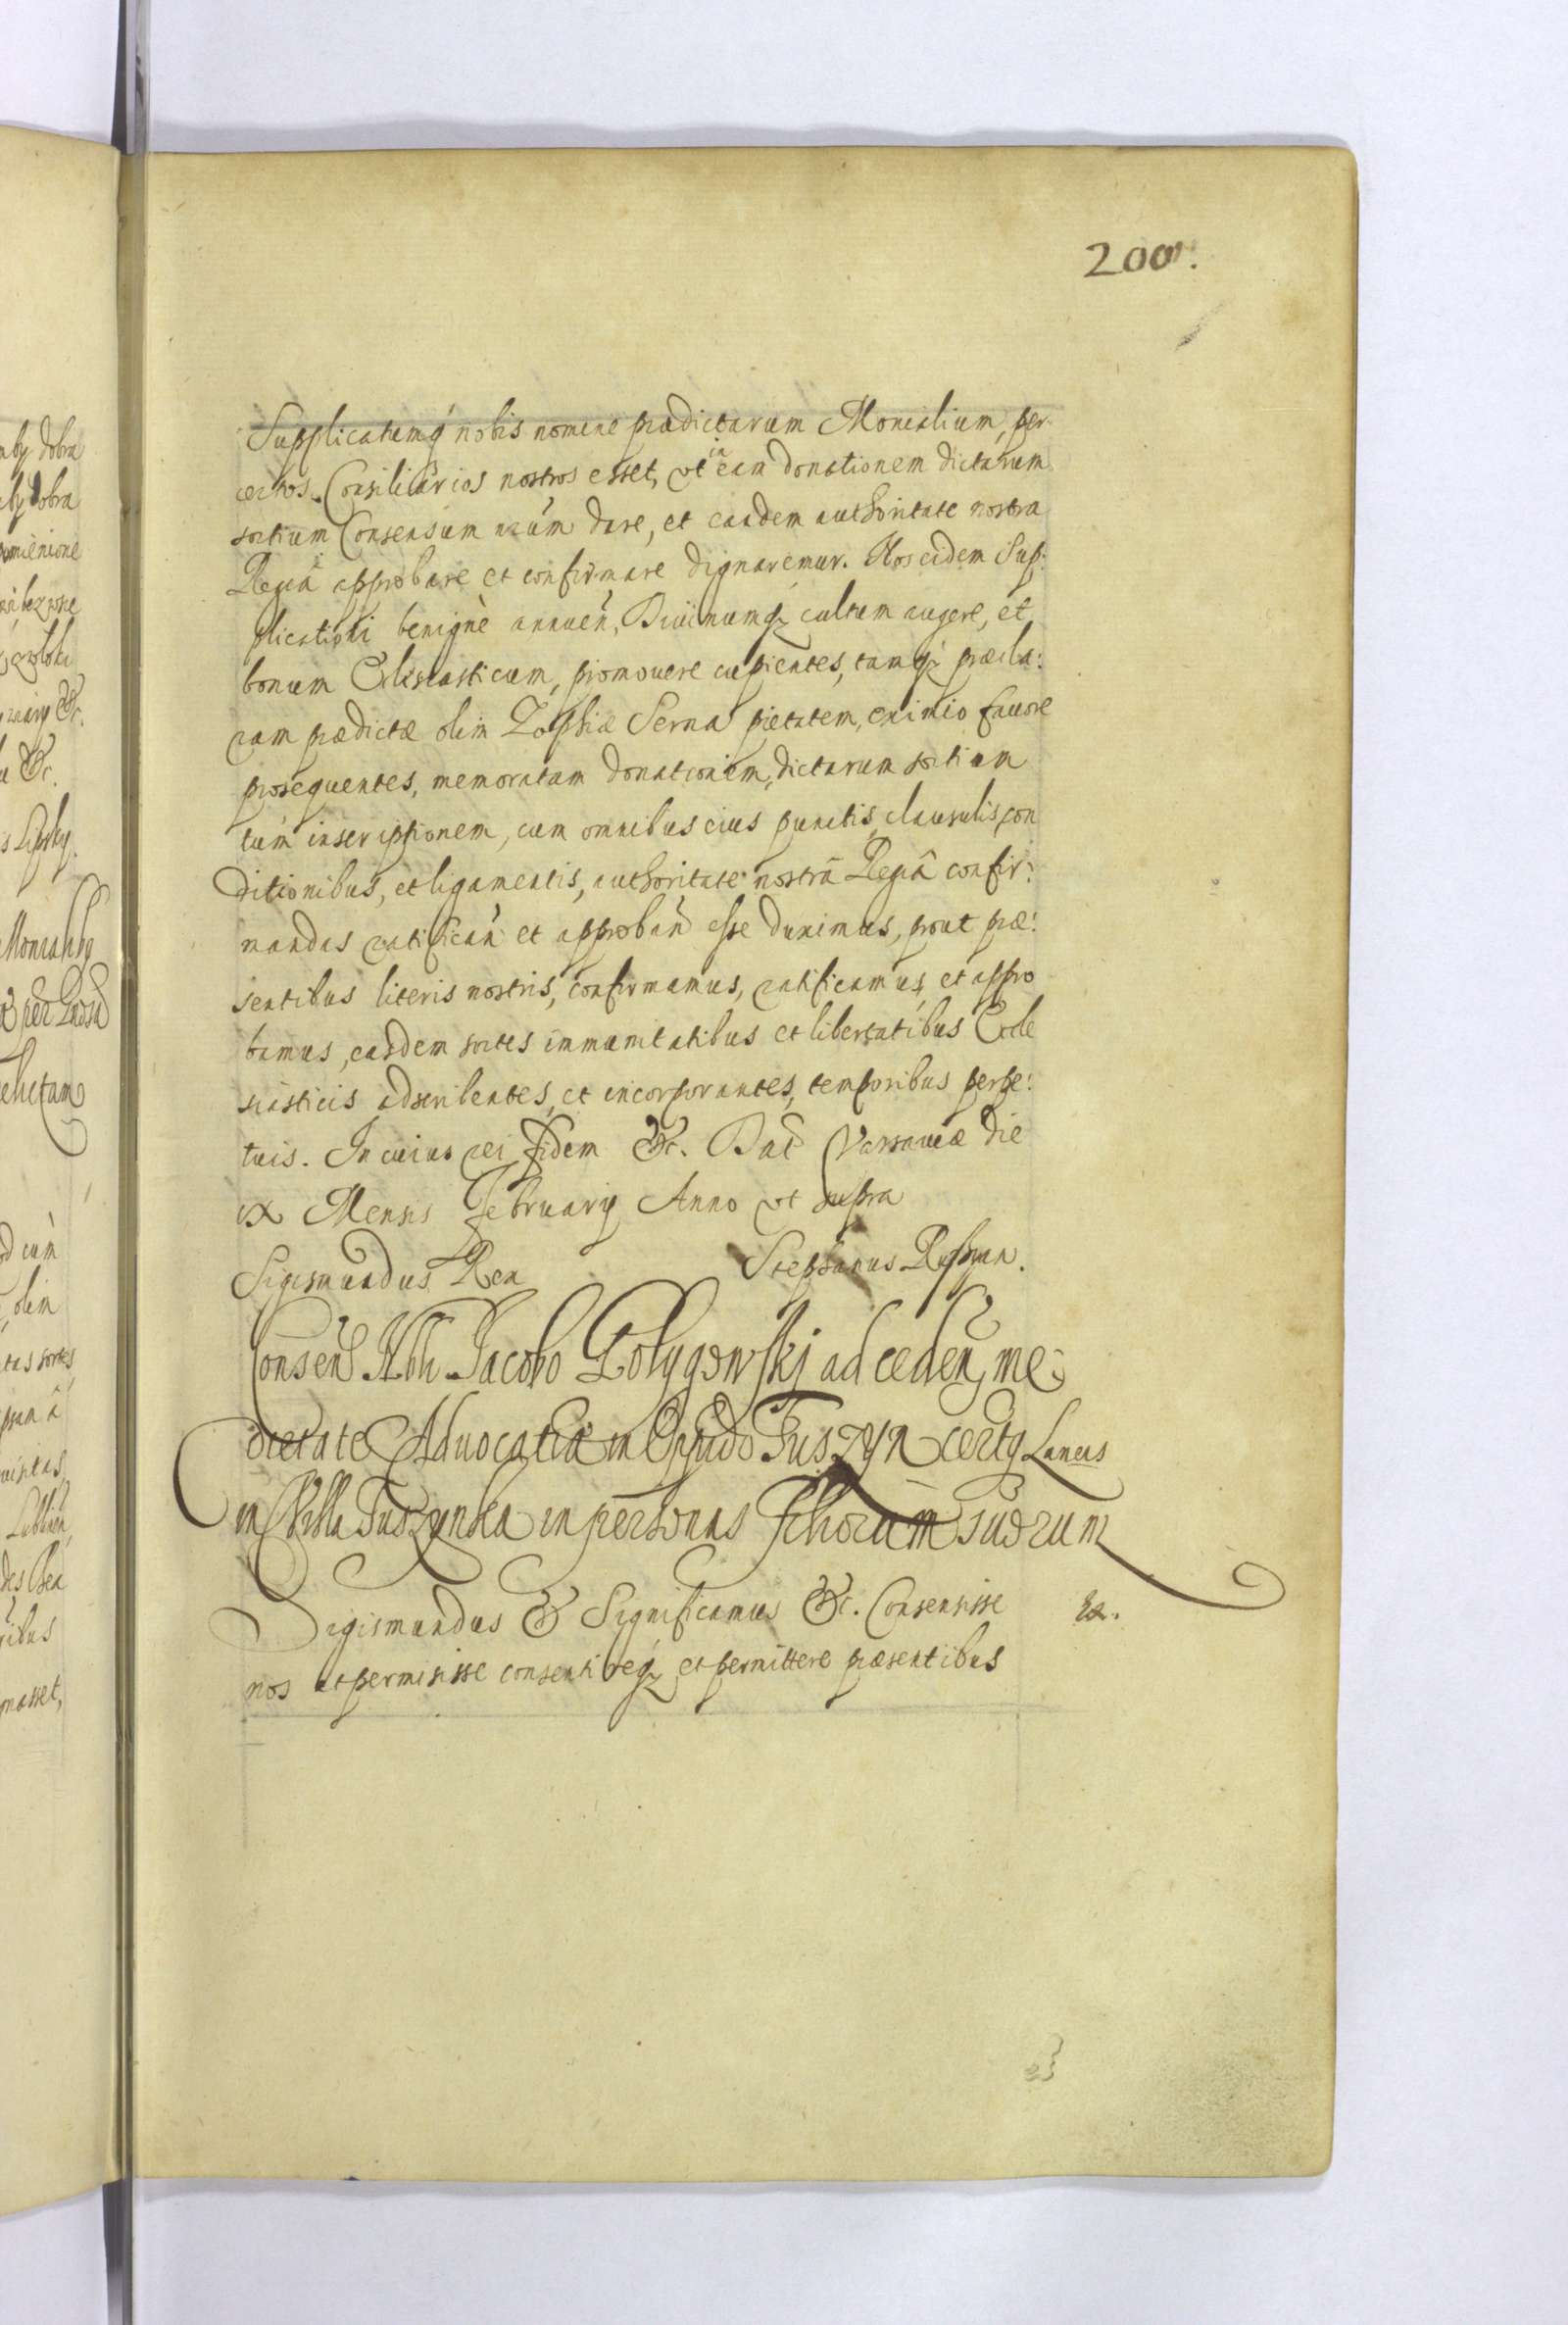 200.
Supplicatumq́ nobis nomine prædictarum Monialium, per
certos Consiliarios nostros esset, vt in eam donationem dictarum
sortium Consensum nr̃um dare, et eandem authoritate nostra
Regiâ approbare et confirmare dignaremur. Nos eidem Sup:
plicationi benignè annueñ, Diuinumq; cultum augere, et
bonum Ecclesiasticum, promouere cupientes, tamq; præcla:
ram prædictæ olim Zophiæ Serna pietatem, eximio fauore
prosequentes, memoratam donationem, dictarum sortium
tum inscriptionem, cum omnibus eius punctis, clausulis, con
ditionibus, et ligamentis, authoritate nostrâ Regiâ confir:
mandas ratificañ et approbañ esse duximus, prout præ:
sentibus literis nostris, confirmamus, ratificamus, et appro
bamus, easdem sortes immunitatibus et libertatibus Eccle
siasticis adscribentes, et incorporantes, temporibus perpe:
tuis. In cuius rei fidem &c. Dat Varsauiæ die
ix Mensis February Anno vt supra
Sigismundus Rex Stephanus
Consens Nbli Jacobo Golygowskj ad cedeñ me:
dietate Aduocatiæ in Oppido Tuszyn certq Laneis
in Villa Tuszynka in personas filiorum suorum
Sigismundus & Significamus &c. Consensisse
nos et permisisse consentireq; et permittere præsentibus